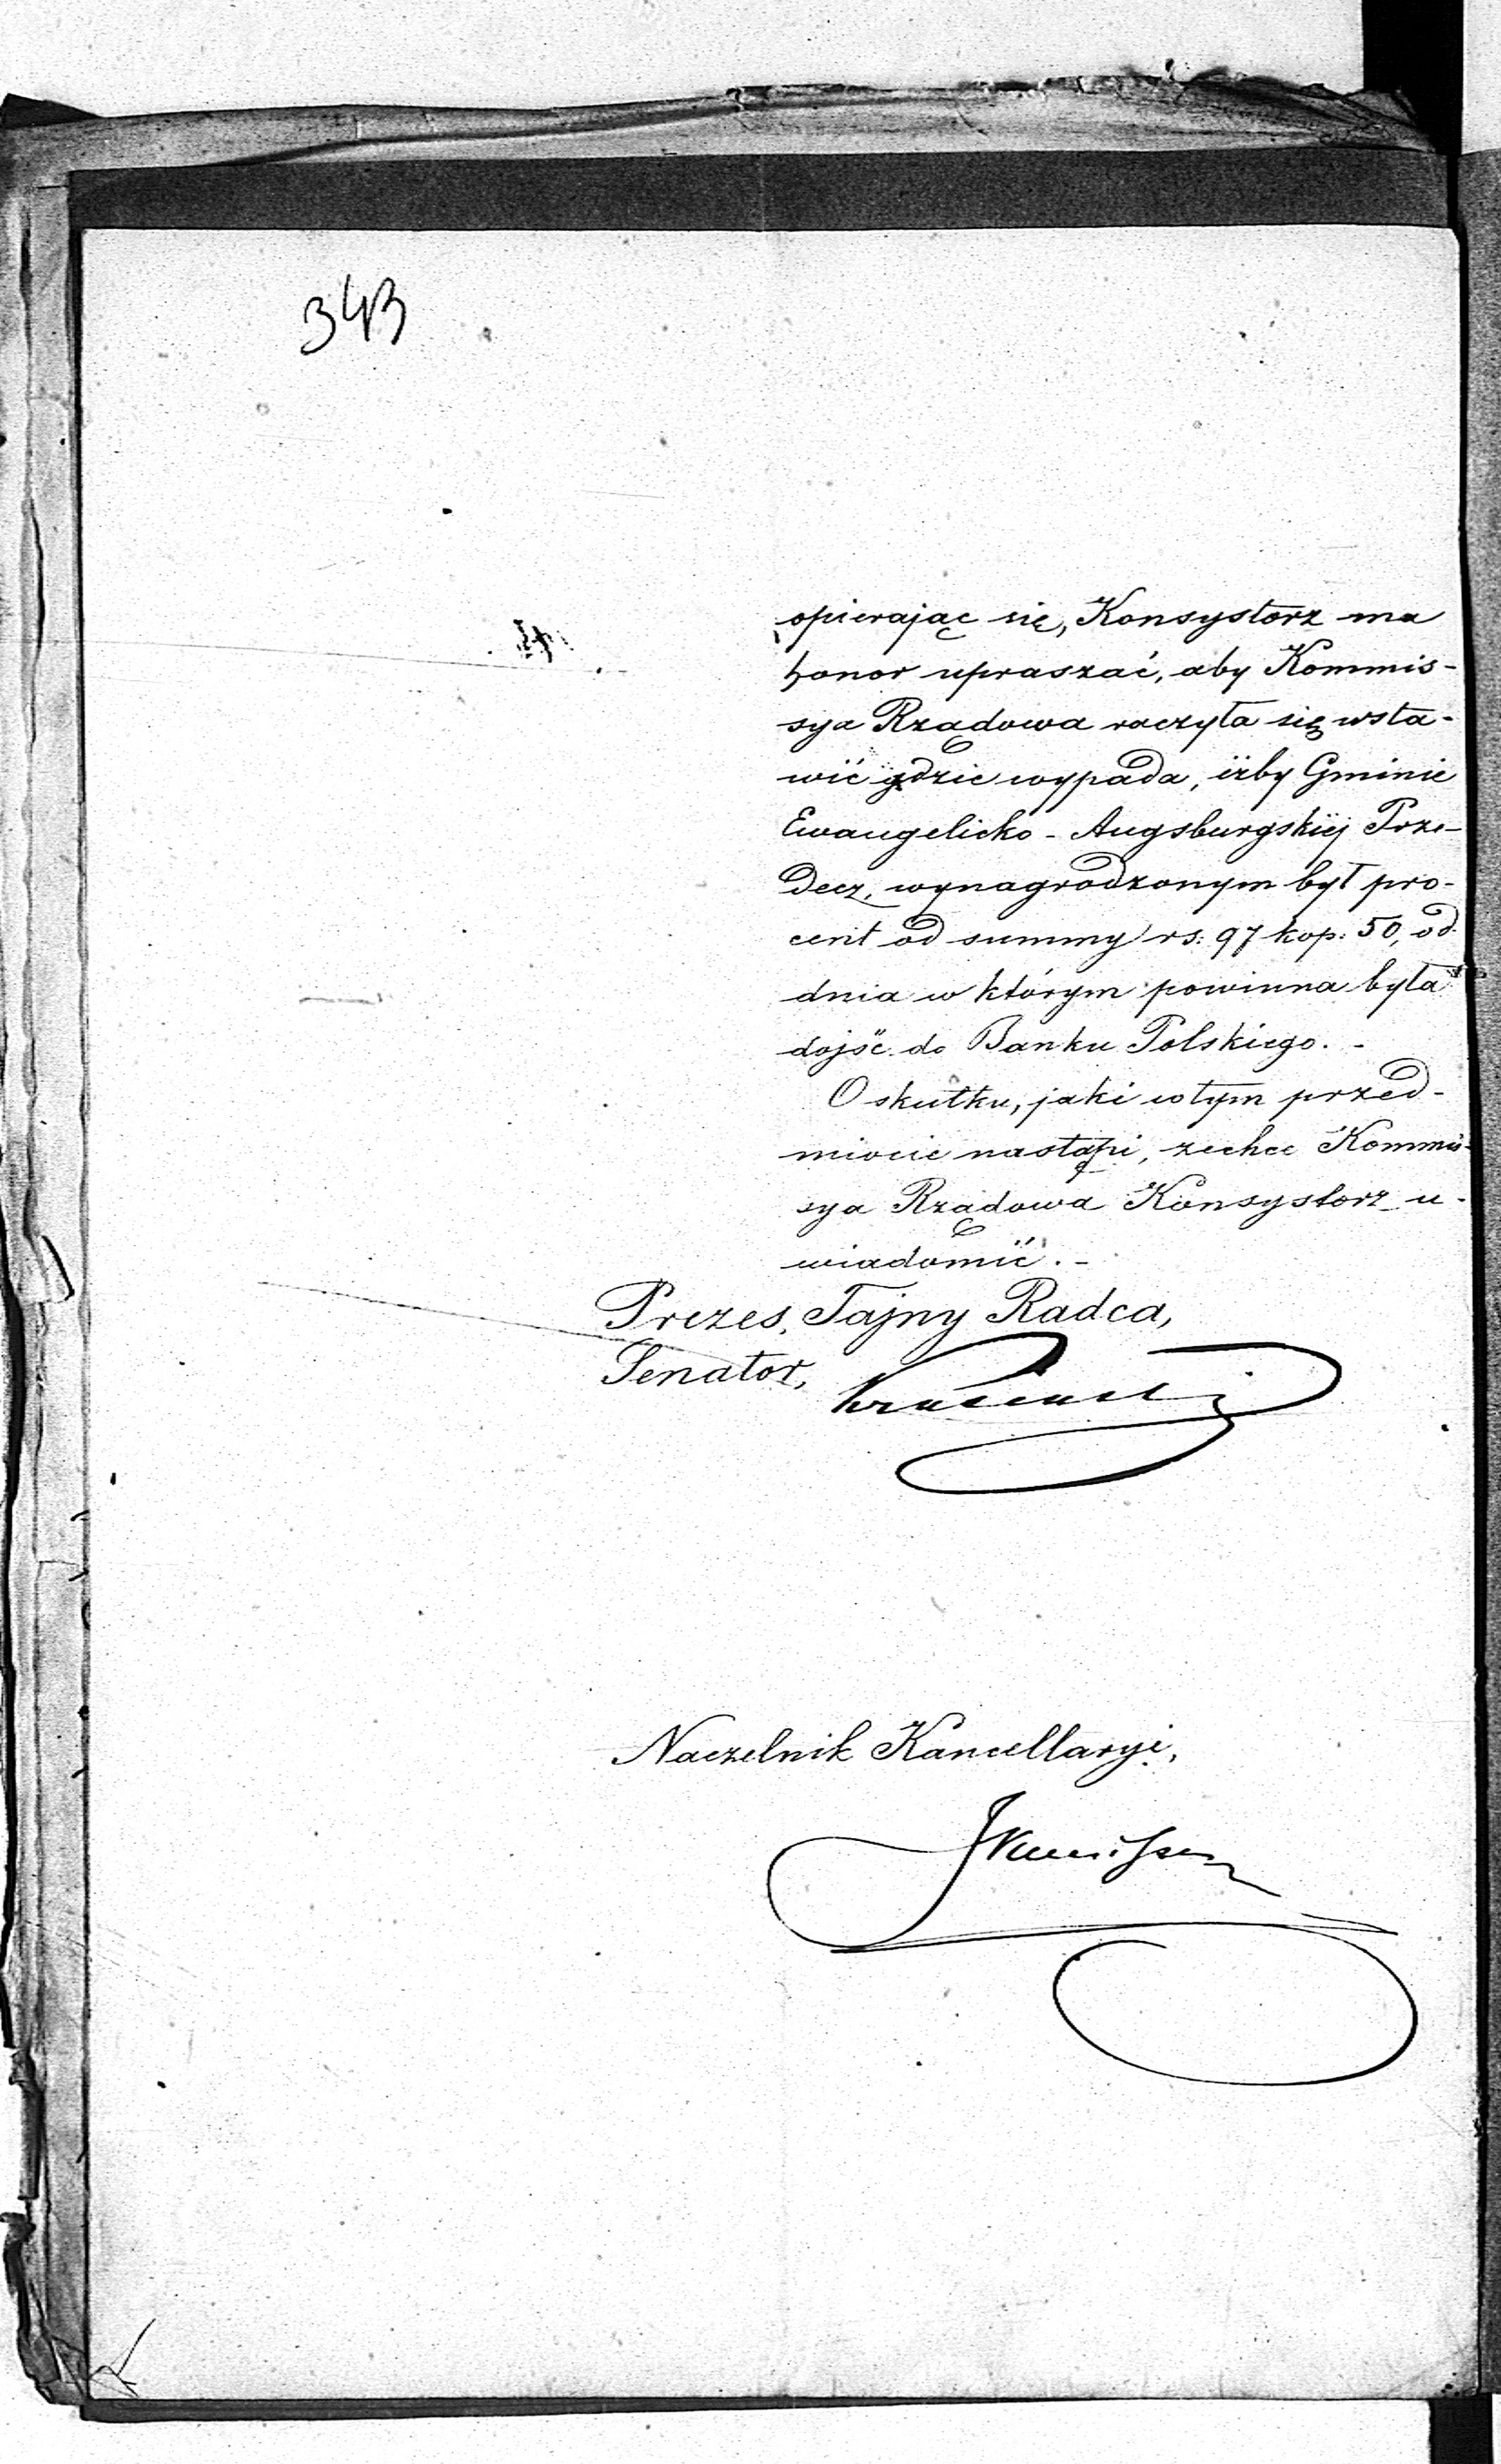 343
opierając się, Konsystorz ma
honor upraszać, aby Kommis-
sya Rządowa raczyła się wsta-
wić gdzie wypada, iżby Gminie
Ewangelicko - Augsburgskiéj Prze-
decz, wynagrodzonym był pro-
cent od summy rs: 97 kop: 50, od
dnia w którym powinna była
dojść do Banku Polskiego. -
O skutku, jaki w tym przed-
miocie nastąpi, zechce Kommis-
sya Rządowa Konsystorz u-
wiadomić. -
Prezes, Tajny Radca,
Senator,
Naczelnik Kancellaryi,